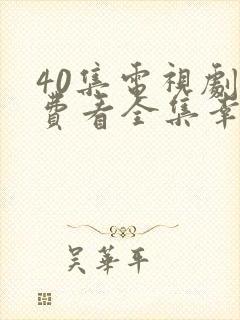 40集電視劇
費看全集幸
吳華平